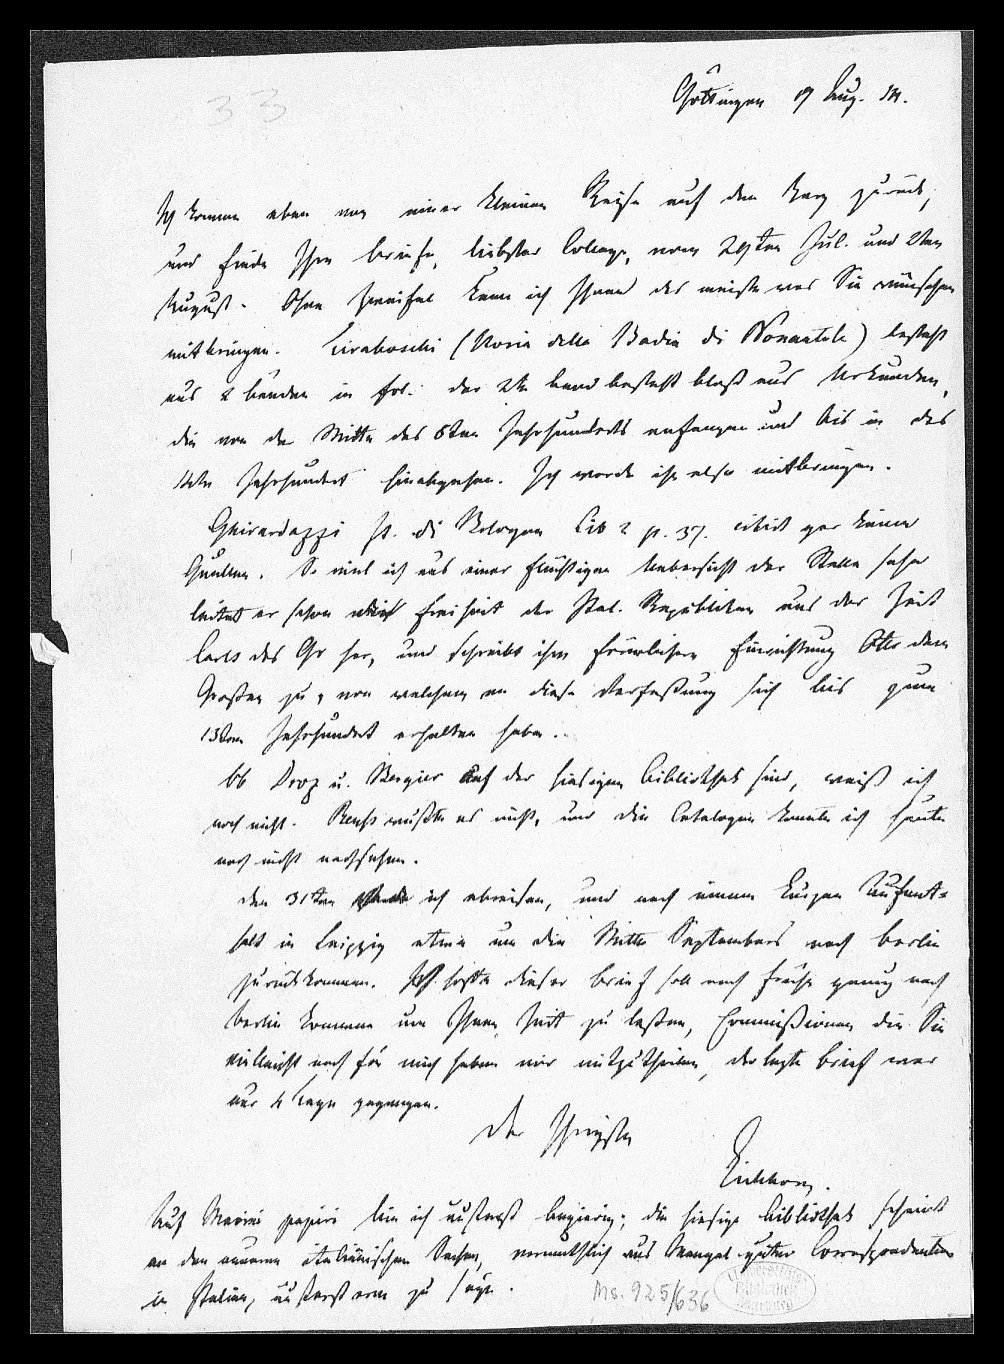 33
Göttingen 19 Aug. 14.
Ich komme eben von einer kleinen Reise auf den Harz zurück,
und finde Ihre briefe, liebster College, vom 29sten Jul. und 2ten
August. Ohne Zweifel kann ich Ihnen das meiste was Sie wünschen
mitbringen. Tiraboschi (Storia della Badia di Nonantola) besteht
aus 2 bänden in fol. der 2te band besteht bloß aus Urkunden,
die von der Mitte des 8ten Jahrhunderts anfangen und bis in das
Jahrhundert hinabgehen. Ich werde ihn also mitbringen.
Ghirardazzi st. di Bologna Lib 2 p. 37. citirt gar keine
Quellen. So viel ich aus einer flüchtigen Uebersicht der Stelle sehe
leitet er schon die Freiheit der Ital. Republiken aus der Zeit
Carls des Gr her, und schreibt ihre förmlichere Einrichtung Otto dem
Großen zu, von welchem an diese Verfaßung sich bis zum
13ten Jahrhundert erhalten habe.
Ob Droz u. Bergier auf der hiesigen bibliothek sind, weiß ich
noch nicht. Reuß wußte es nicht, und die Catalogen konnte ich heute
noch nicht nachsehen.
den 31ten werde ich abreisen, und nach einem kurzen Aufent-
halt in Leipzig etwa um die Mitte Septembers nach berlin
zurückkommen. Ich hoffe dieser brief soll noch frühe genug nach
berlin kommen um Ihnen Zeit zu laßen, Commißionen die Sie
vielleicht noch für mich haben mir mitzutheilen, der lezte brief war
nur 4 Tage gegangen.
Der Ihrigste
Eichhorn.
Auf Marini papiri bin ich äußerst begierig; die hiesige bibliothek scheint
an den neueren italiänischen Sachen, vermuthlich aus Mangel guter Correspondenten
in Italien, äußerst arm zu seyn.
Ms. 925/636